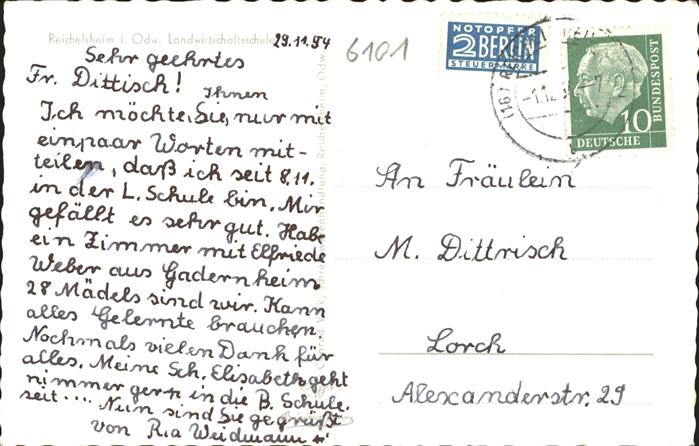 Reichelsheim i. Odw. Landwirtschaftsschule
29.11.54
6101
Sehr geehrtes
Fr. Dittisch!
Ihnen
Ich möchte Sie, nur mit
einpaar Worten mit-
teilen, daß ich seit 8.11.
in der L. Schule bin. Mir
gefällt es sehr gut. Habe
ein Zimmer mit Elfriede
Weber aus Gadernheim
28 Mädels sind wir. Kann
alles Gelernte brauchen
Nochmals vielen Dank für
alles. Meine Sch. Elisabeth geht
nimmer gern in die B. Schule.
seit... Nun sind Sie gegrüßt
von Ria Weidmann
NOTOPFER
2 BERLIN
STEUERMARKE
DEUTSCHE
BUNDESPOST
10
An Fräulein
M. Dittrisch
Lorch
Alexanderstr. 29